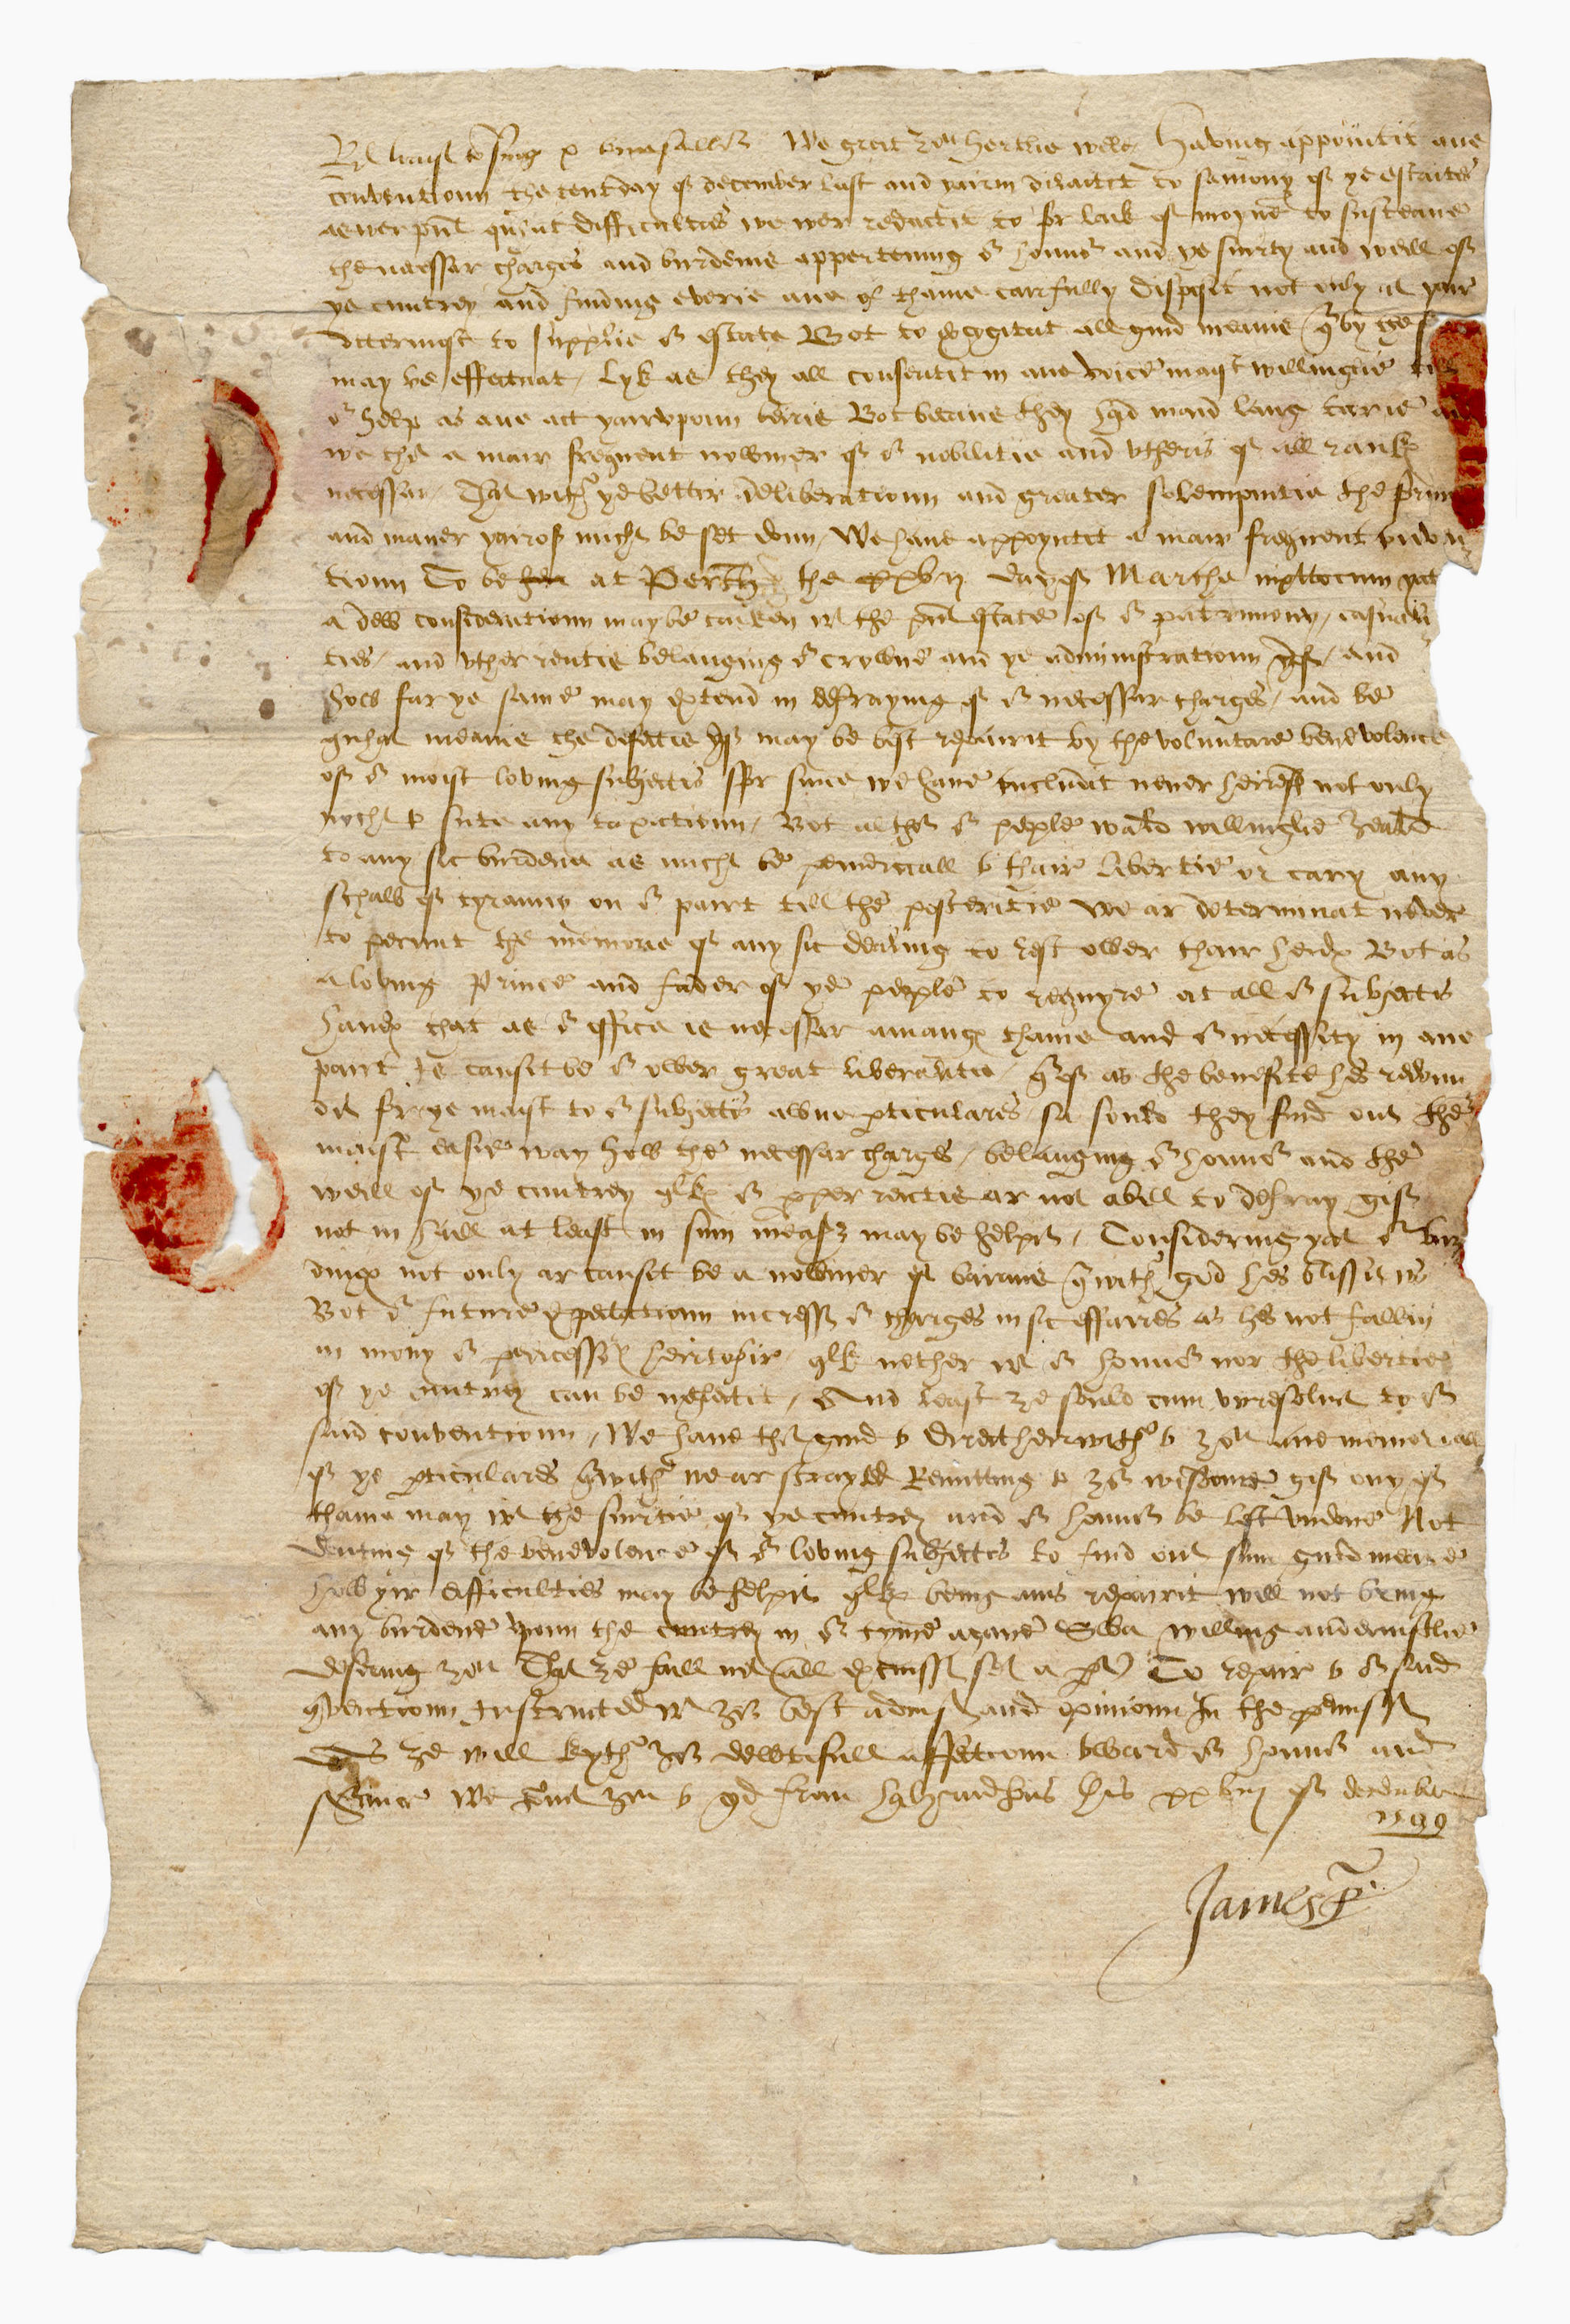 We greit zow hertlie wele Having appointit ane
conventioun the tent day of december last and yairin to so mony of ye estaitis
as wer pnt quhat difficulties we wer redactit to for laik of moyne to susteane
the necessar charges and burdenis apperteining or honor and ye surety and weill of
ye cuntrey and finding everie ane of thame carefully disposit not only at yair
uttermost to supplie or estate Bot to excogitat all guid meanis qrby the
may be effectuat, Lyk as they all consentit in ane voice maist willinglie
or help as ane act yairvpoun beiris Bot becaus they
we a mair frequent nowmer of or nobilitie and vtheris of all rankis
necessar, That with ye better deliberatioun and greater solempnitie the
and maner yairof micht be set doun, We have appoyntit a mair frequent
tioun To be at Perth the xxvij day of Marche nixttocum yat
a dew consideratioun may be taiken in the pnt estate of or patrimony, casuali
ties, and vther rentis belanging or crowne and ye administratioun yrof, and
how far ye same may extend in defraying of or necessar charges, and be
quhat meanis the defectis yrof may be best repairit by the voluntare benevolence
of or maist loving subjectis for sence we have never heirto not only
nocht to sute any taxatioun, Bot altho or people wald willinglie zeald
to any sic burdene as micht be preiudiciall to thair libertie or cary any
schaw of tyranny on or pairt till the posteritie We ar determinat never
to permit the memorie of any sic dealing to rest ower thair heidis Bot as
a loving Prince and fader of ye people to requyre at all or subjectis
handis that as or office is necessar amangis thame and or necessity in ane
pairt is causit be or ower great liberalitie, qrof as the benefite hes redoun
dit for ye maist to or subjectis awne pticulares sa sould they find out the
maist easie way how the necessar charges, belanging or honor and the
weill of ye cuntrey qlkis or pper rentis ar not abill to defray gif
not in haill at least in sum measr may be helpit, Considering yat or bur
dingis not only ar causit be a nowmer of bairnis qrwith god hes blissit ws
Bot or future expectatioun incressis or charges in sic effaires as hes not fallin
in mony or predicessoris heirtofoir, qlk nether wt or honor nor the libertie
of ye cuntrey can be neglectit, And least ze sould cum vnresolvit to or
said conventioun, We have tht guid to direct heirwith to zow ane memoriall
of ye pticulares qrwith we ar straytit Remitting to zor wisdome gif ony of
thame may wt the suretie of ye cuntrey and or honor be left vndone Not
douting of the benevolence of or loving subjectis to find out sum guid meane
how yir difficulties may be helpit qlkis being anis repairit will not bring
any burdene vpoun the cuntrey in or tyme agane Swa willing and ernistlie
desiring zow That ze faill not all excuissis set a pt To repair to or said
conventioun instructed wt zor best advise and opinioun In the premissis
As ze will kyth zor dewtifull affectioun toward or honor and
service We comit zow to god from halyrudhous this xxviij of december
1599
James R